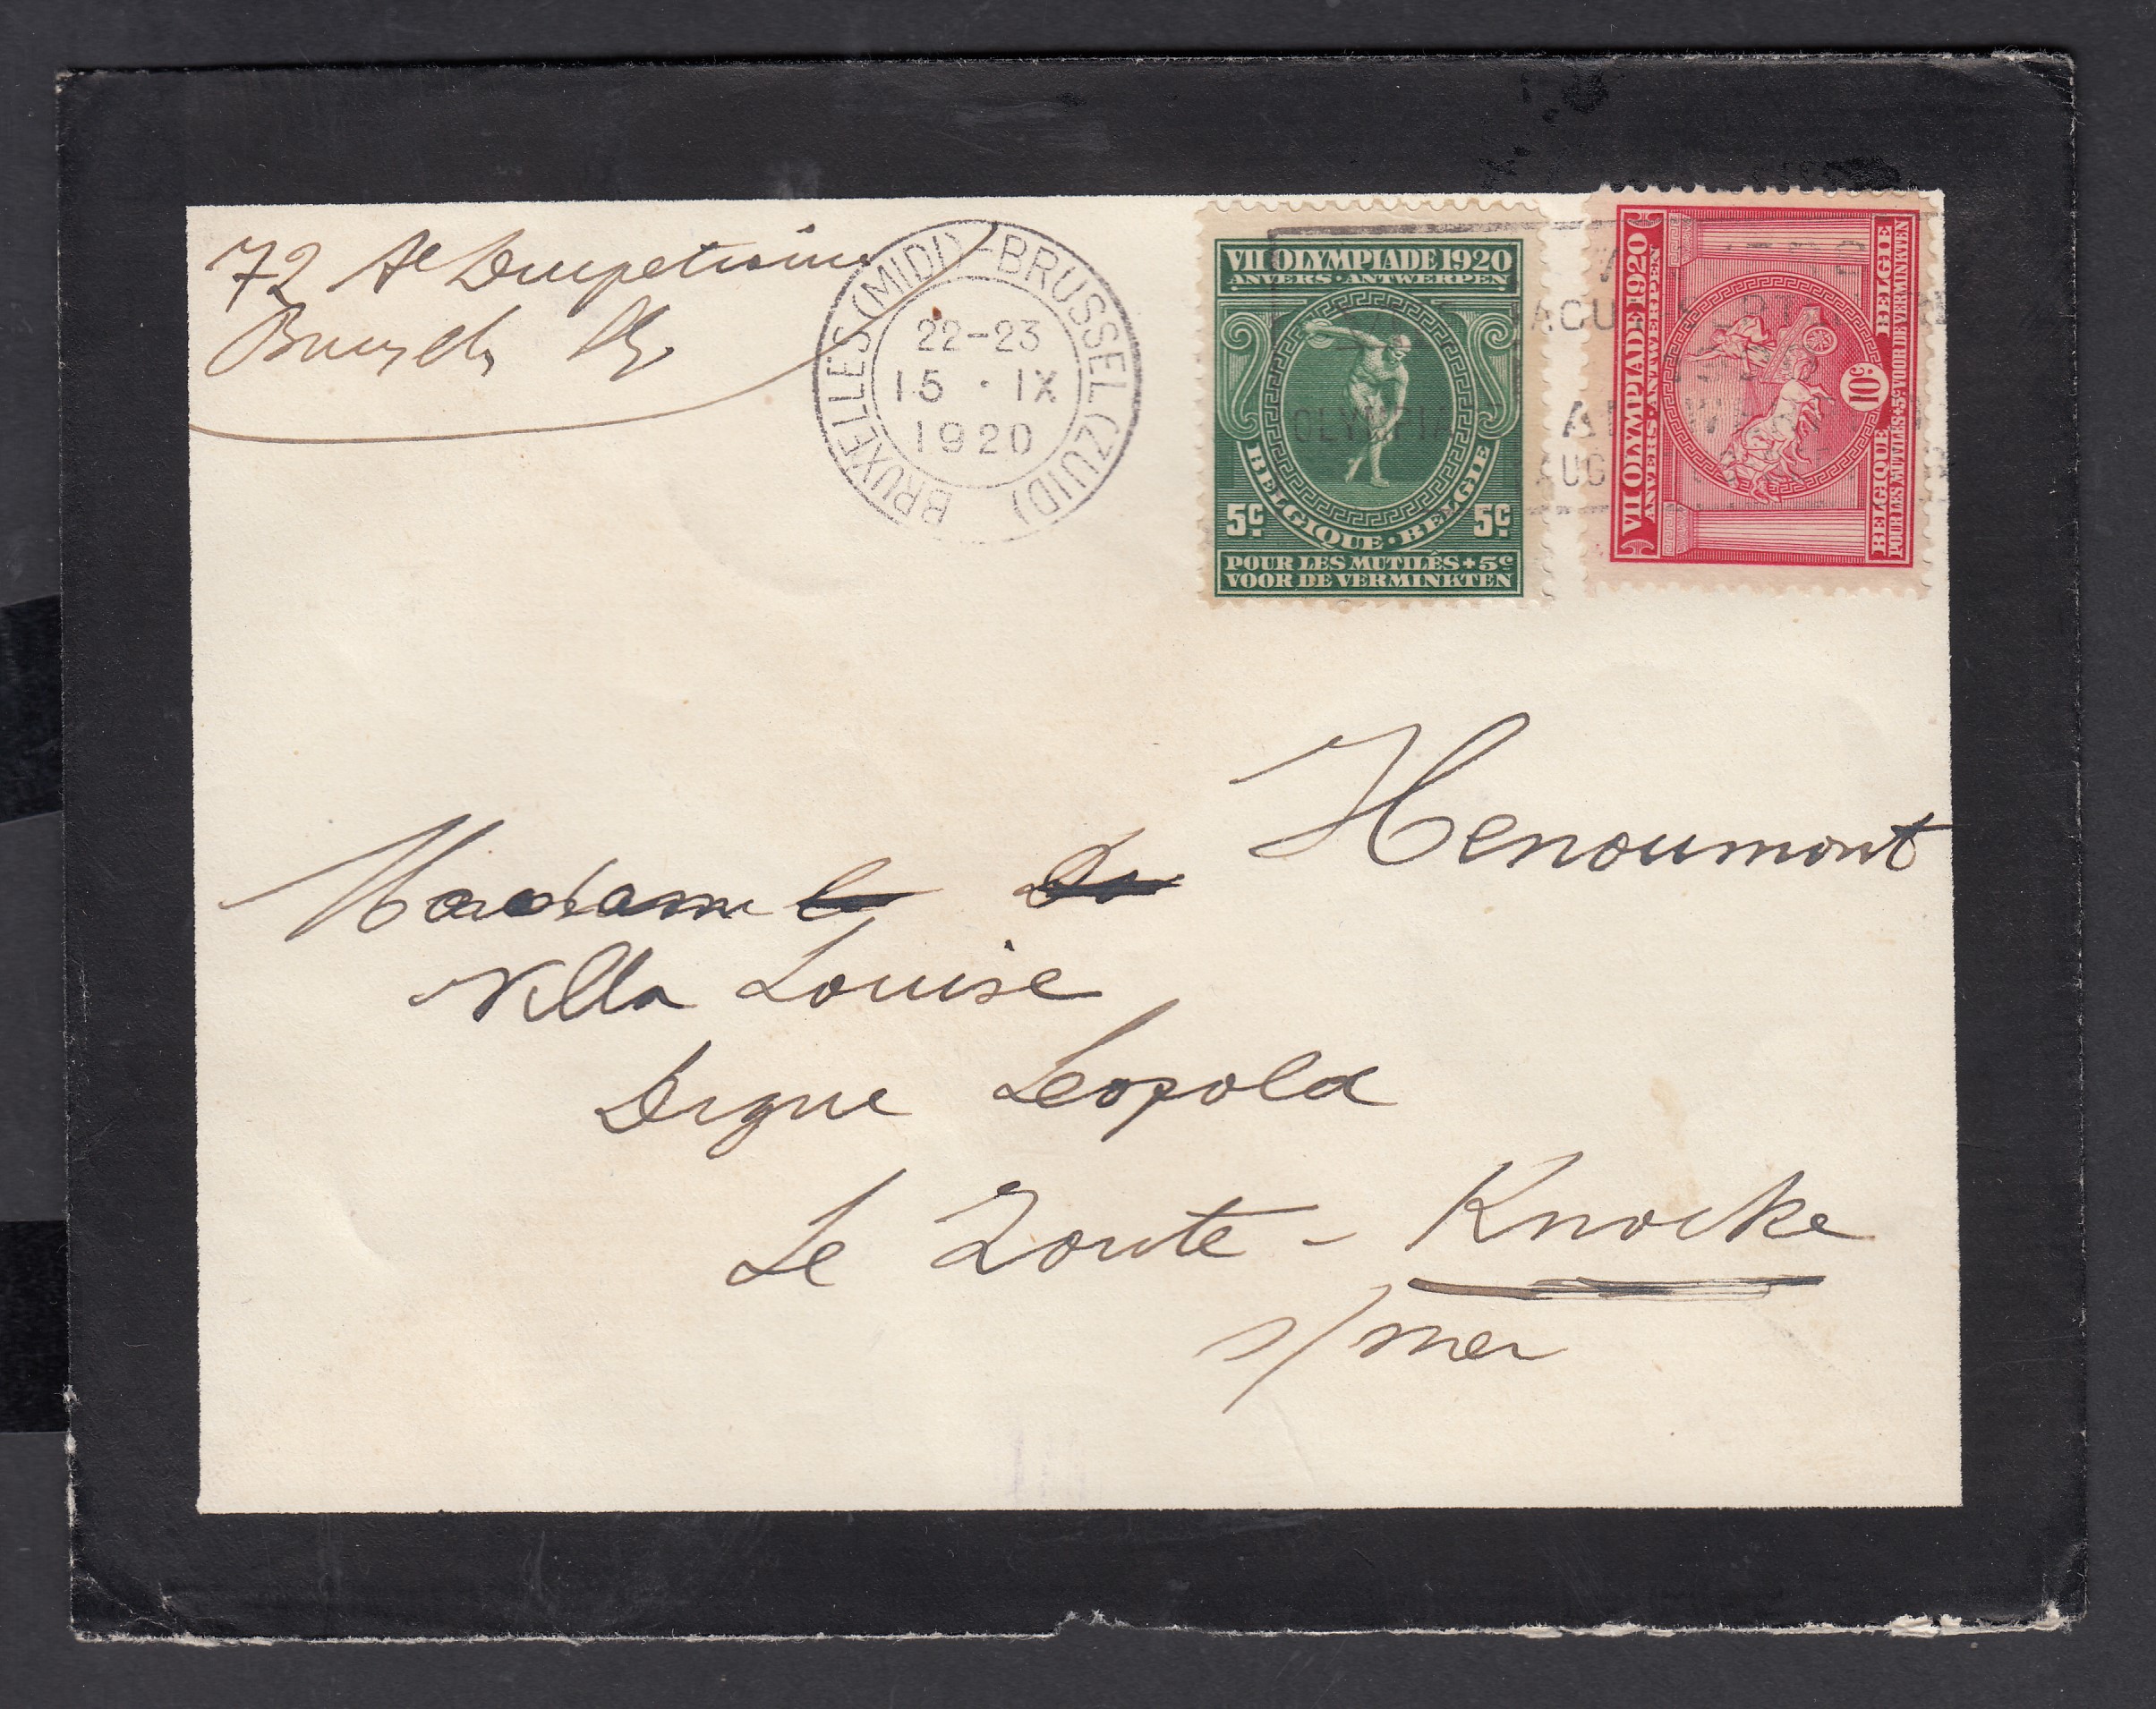 72 Av Ducpetiaux
BRUXELLES (MIDI) - BRUSSEL (ZUID)
22-23
15 · IX
1920
VII OLYMPIADE 1920
ANVERS · ANTWERPEN
BELGIQUE · BELGIE
5c 5c
POUR LES MUTILÉS + 5c
VOOR DE VERMINKTEN
VII OLYMPIADE 1920
ANVERS · ANTWERPEN
10c
BELGIQUE BELGIE
POUR LES MUTILES + 5c VOOR DE VERMINKTEN
Madame Henoumont
Villa Louise
Digue Leopold
Le Zoute - Knocke
s/mer